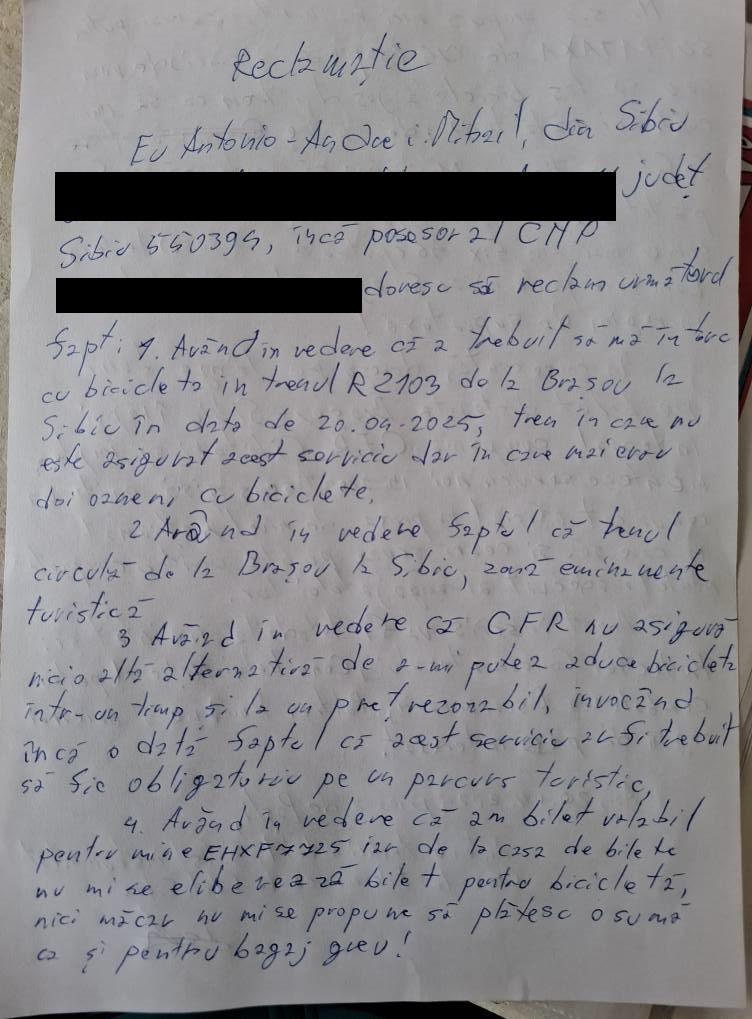 Reclamație
Eu Antonio-Andrei Mihail, din Sibiu
județ
Sibiu 550394, încă posesor al CMP
doresc să reclam următorul
fapt: 1. Având în vedere că a trebuit să mă întorc
cu bicicleta în trenul R2103 de la Brașov la
Sibiu în data de 20.04.2025, tren în care nu
este asigurat acest serviciu dar în care mai erau
doi oameni cu biciclete.
2 Având în vedere faptul că trenul
circulă de la Brașov la Sibiu, zonă eminamente
turistică
3 Având în vedere că CFR nu asigură
nicio altă alternativă de a-mi putea aduce bicicleta
într-un timp și la un preț rezonabil, invocând
încă o dată faptul că acest serviciu ar fi trebuit
să fie obligatoriu pe un parcurs turistic,
4. Având în vedere că am bilet valabil
pentru mine EHXF7725 iar de la casa de bilete
nu mi se eliberează bilet pentru bicicletă,
nici măcar nu mi se propune să plătesc o sumă
ca și pentru bagaj greu!